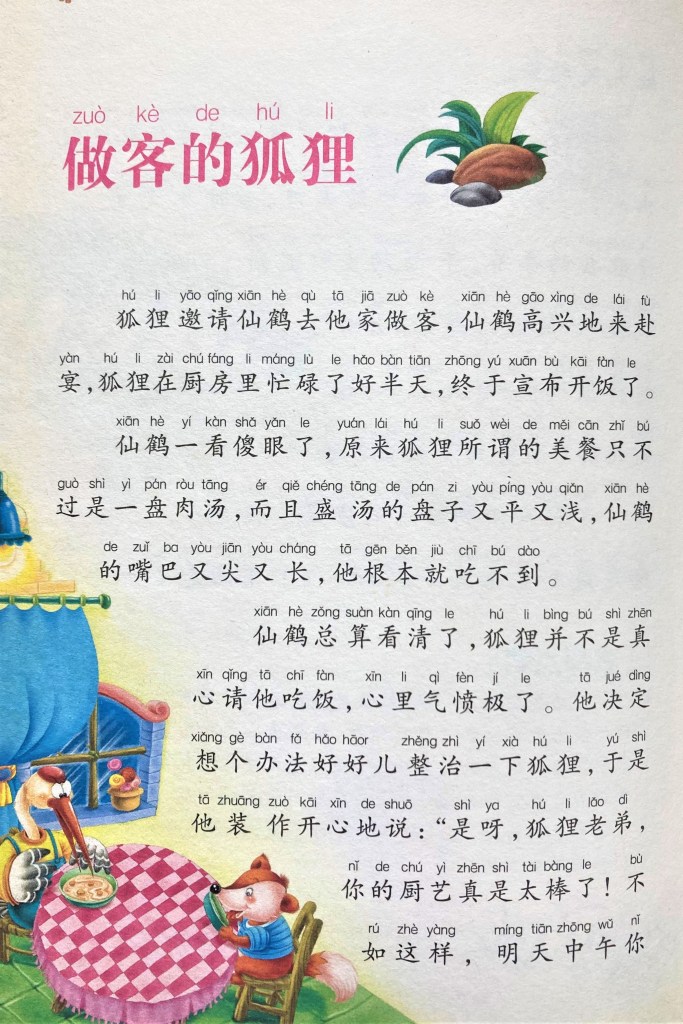 zuò kè de hú li
做客的狐狸
hú li yāo qǐng xiān hè qù tā jiā zuò kè xiān hè gāo xìng de lái fù
狐狸邀请仙鹤去他家做客,仙鹤高兴地来赴
yàn hú li zài chú fáng li máng lù le hǎo bàn tiān zhōng yú xuān bù kāi fàn le
宴,狐狸在厨房里忙碌了好半天,终于宣布开饭了。
xiān hè yí kàn shǎ yǎn le yuán lái hú li suǒ wèi de měi cān zhǐ bú
仙鹤一看傻眼了,原来狐狸所谓的美餐只不
guò shì yì pán ròu tāng ér qiě chéng tāng de pán zi yòu píng yòu qiǎn xiān hè
过是一盘肉汤,而且盛汤的盘子又平又浅,仙鹤
de zuǐ ba yòu jiān yòu cháng tā gēn běn jiù chī bú dào
的嘴巴又尖又长,他根本就吃不到。
xiān hè zǒng suàn kàn qīng le hú li bìng bú shì zhēn
仙鹤总算看清了,狐狸并不是真
xīn qǐng tā chī fàn xīn li qì fèn jí le tā jué dìng
心请他吃饭,心里气愤极了。他决定
xiǎng gè bàn fǎ hǎo hāor zhěng zhì yí xià hú li yú shì
想个办法好好儿整治一下狐狸,于是
tā zhuāng zuò kāi xīn de shuō shì ya hú li lǎo dì
他装作开心地说:“是呀,狐狸老弟,
nǐ de chú yì zhēn shì tài bàng le bù
你的厨艺真是太棒了!不
rú zhè yàng míng tiān zhōng wǔ nǐ
如这样,明天中午你